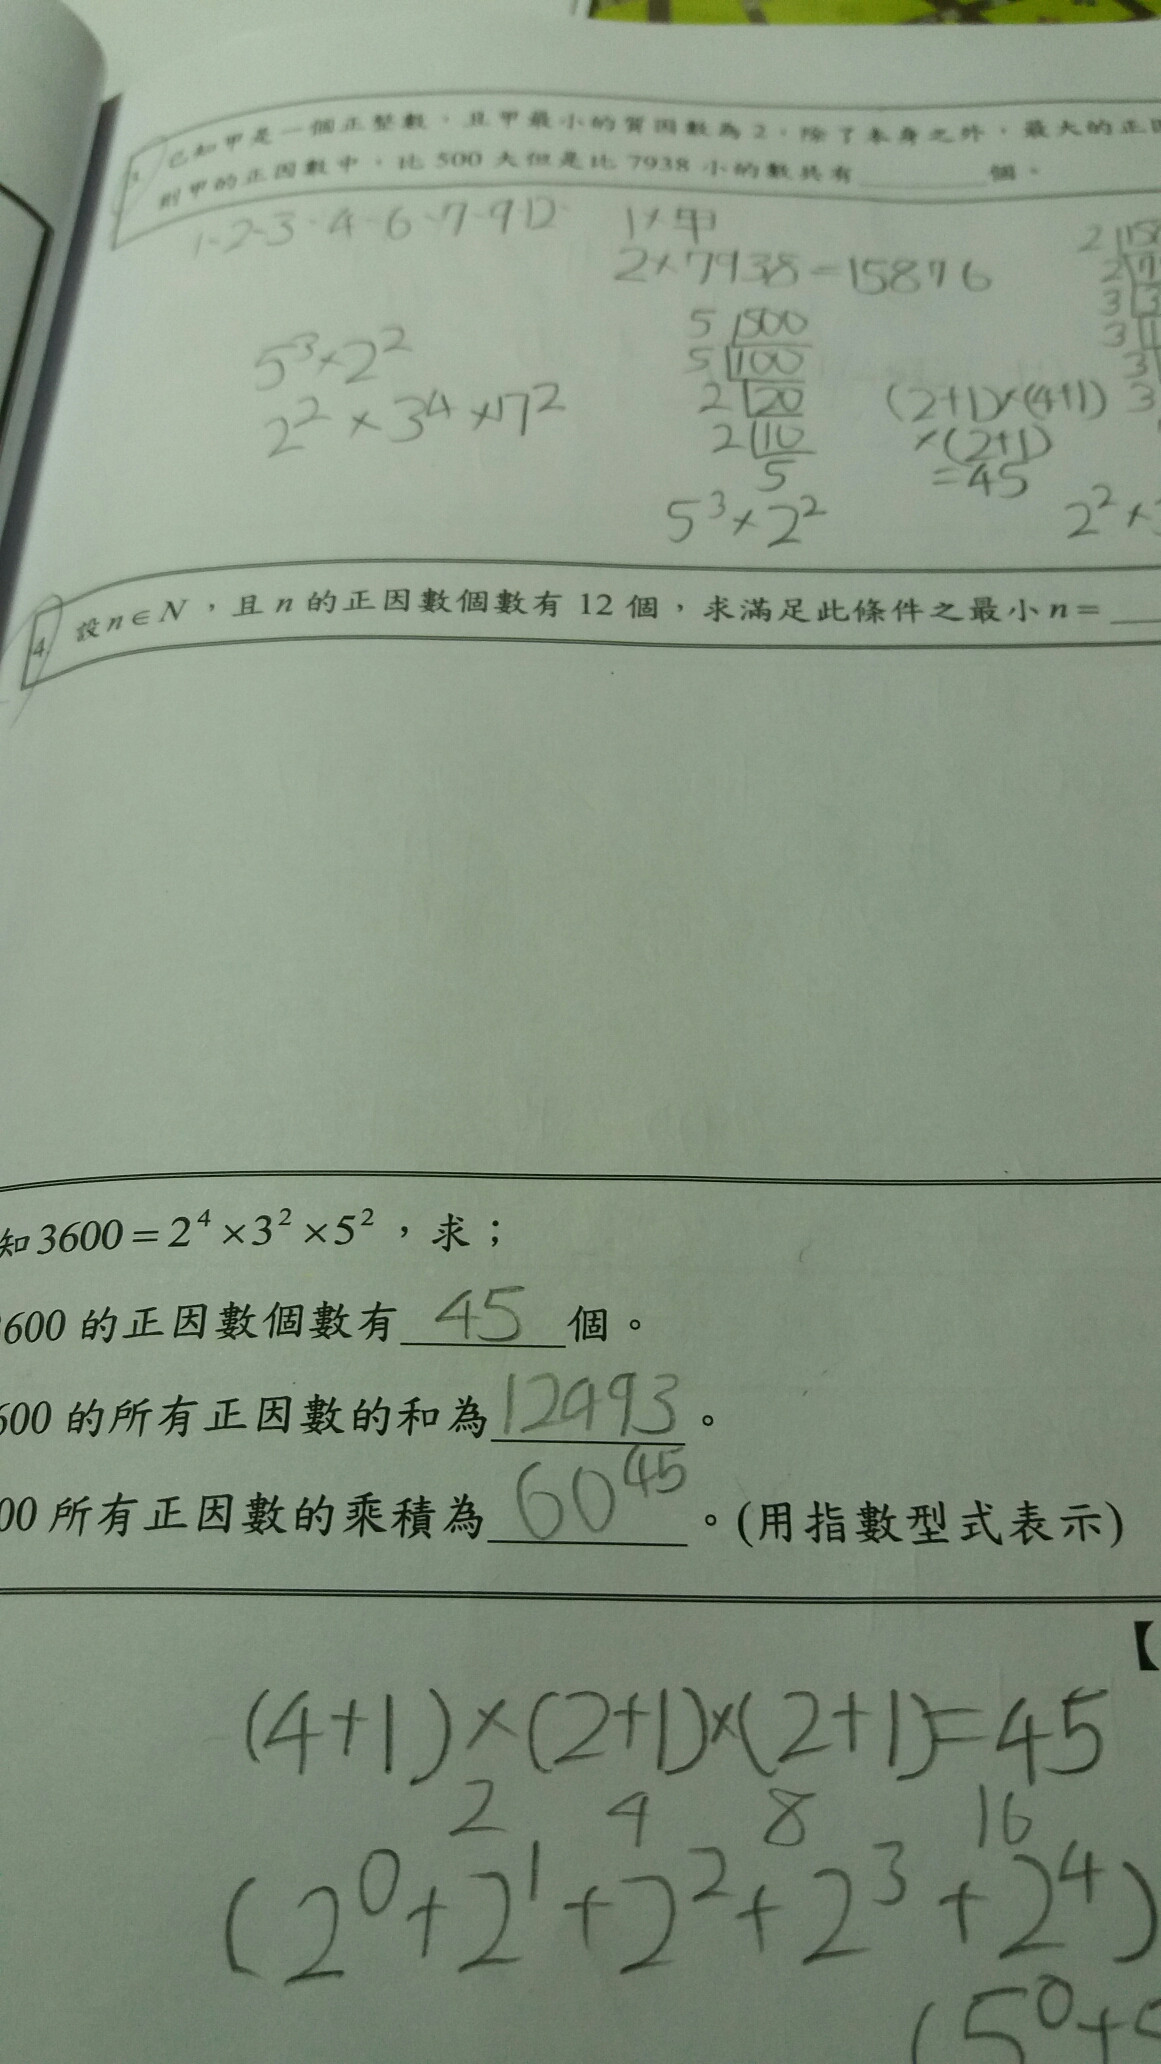 已知甲是一個正整數，且甲最小的質因數為2，除了本身之外，最大的正
則甲的正因數中，比 500 大但是比 7938 小的數共有______個。
1·2·3·4·6·7·9·12·
1×甲
2×7938=15876
5³×2²
2²×3⁴×7²
5 500
5 100
2 20
2 10
5
5³×2²
(2+1)×(4+1)
×(2+1)
=45
2
2
3
3
3
3
2²×
4
設 n∈N，且 n 的正因數個數有 12 個，求滿足此條件之最小 n=
知 3600=2⁴×3²×5²，求；
600 的正因數個數有 45 個。
600 的所有正因數的和為 12493。
00 所有正因數的乘積為 60⁴⁵。(用指數型式表示)
【
(4+1)×(2+1)×(2+1)=45
2 4 8 16
(2⁰+2¹+2²+2³+2⁴)
(5⁰+5